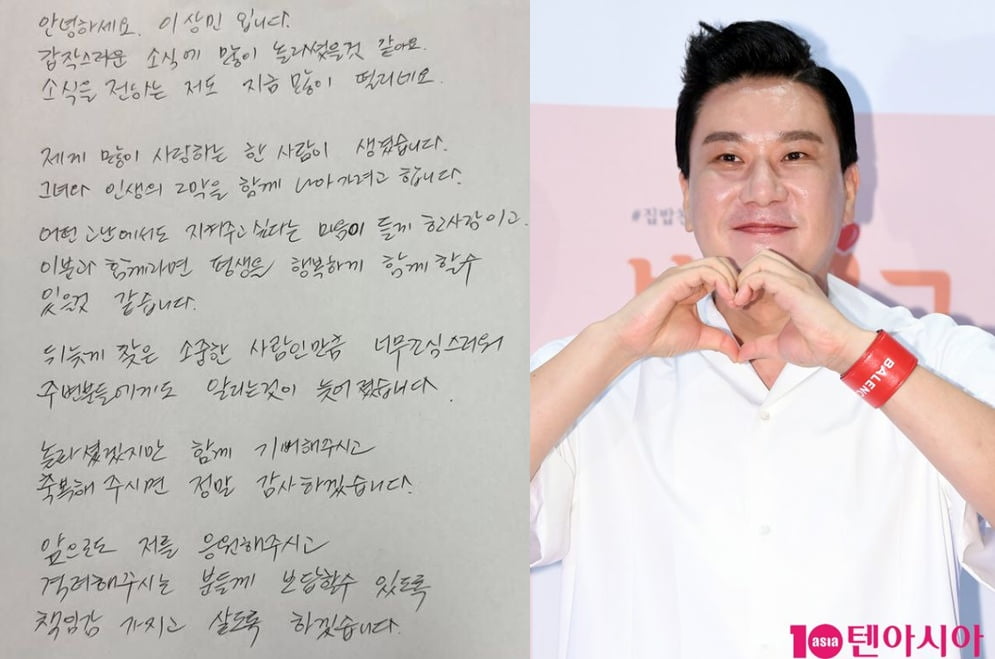 안녕하세요. 이상민 입니다.
갑작스러운 소식에 많이 놀라셨을것 같아요.
소식을 전하는 저도 지금 많이 떨리네요.
제게 많이 사랑하는 한 사람이 생겼습니다.
그녀와 인생의 2막을 함께 나아가려고 합니다.
어떤 고난에서도 지켜주고 싶다는 마음이 들게 한사람이고.
이분과 함께라면 평생을 행복하게 함께 할수
있을것 같습니다.
뒤늦게 찾은 소중한 사람인만큼 너무조심스러워
주변분들에게도 알리는것이 늦어졌습니다.
놀라셨겠지만 함께 기뻐해주시고
축복해 주시면 정말 감사하겠습니다.
앞으로도 저를 응원해주시고
격려해주시는 분들께 보답할수 있도록
책임감 가지고 살도록 하겠습니다.
#집밥
BALENC
10 asia 텐아시아